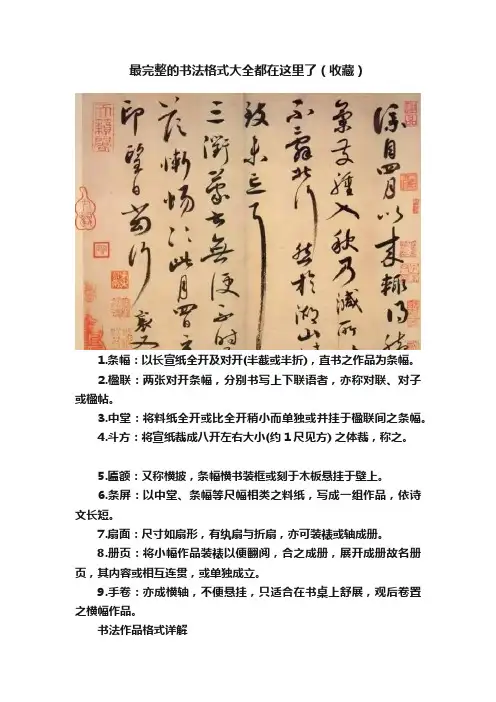 最完整的书法格式大全都在这里了（收藏）
自四月以来輒得
氣發腫入秋乃減所
不辭北行然於湖山
致未忘耳
三衢蒙書無便不時
印望日當行襄又
1.条幅：以长宣纸全开及对开(半截或半折)，直书之作品为条幅。
2.楹联：两张对开条幅，分别书写上下联语者，亦称对联、对子
或楹帖。
3.中堂：将料纸全开或比全开稍小而单独或并挂于楹联间之条幅。
4.斗方：将宣纸裁成八开左右大小(约1尺见方) 之体裁，称之。
5.匾额：又称横披，条幅横书装框或刻于木板悬挂于壁上。
6.条屏：以中堂、条幅等尺幅相类之料纸，写成一组作品，依诗
文长短。
7.扇面：尺寸如扇形，有纨扇与折扇，亦可装裱或轴成册。
8.册页：将小幅作品装裱以便翻阅，合之成册，展开成册故名册
页，其内容或相互连贯，或单独成立。
9.手卷：亦成横轴，不便悬挂，只适合在书桌上舒展，观后卷置
之横幅作品。
书法作品格式详解